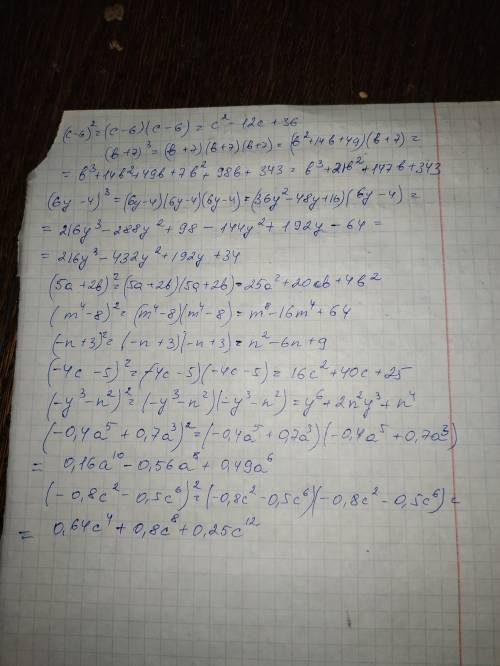 (c-6)²=(c-6)(c-6)=c²-12c+36
(b+7)³=(b+7)(b+7)(b+7)=(b²+14b+49)(b+7)=
=b³+14b²+49b+7b²+98b+343=b³+21b²+147b+343
(6y-4)³=(6y-4)(6y-4)(6y-4)=(36y²-48y+16)(6y-4)=
=216y³-288y²+98-144y²+192y-64=
=216y³-432y²+192y+34
(5a+2b)²=(5a+2b)(5a+2b)=25a²+20ab+4b²
(m⁴-8)²=(m⁴-8)(m⁴-8)=m⁸-16m⁴+64
(-n+3)²=(-n+3)(-n+3)=n²-6n+9
(-4c-5)²=(-4c-5)(-4c-5)=16c²+40c+25
(-y³-n²)²=(-y³-n²)(-y³-n²)=y⁶+2n²y³+n⁴
(-0,4a⁵+0,7a³)²=(-0,4a⁵+0,7a³)(-0,4a⁵+0,7a³)
=0,16a¹⁰-0,56a⁸+0,49a⁶
(-0,8c²-0,5c⁶)²=(-0,8c²-0,5c⁶)(-0,8c²-0,5c⁶)=
=0,64c⁴+0,8c⁸+0,25c¹²